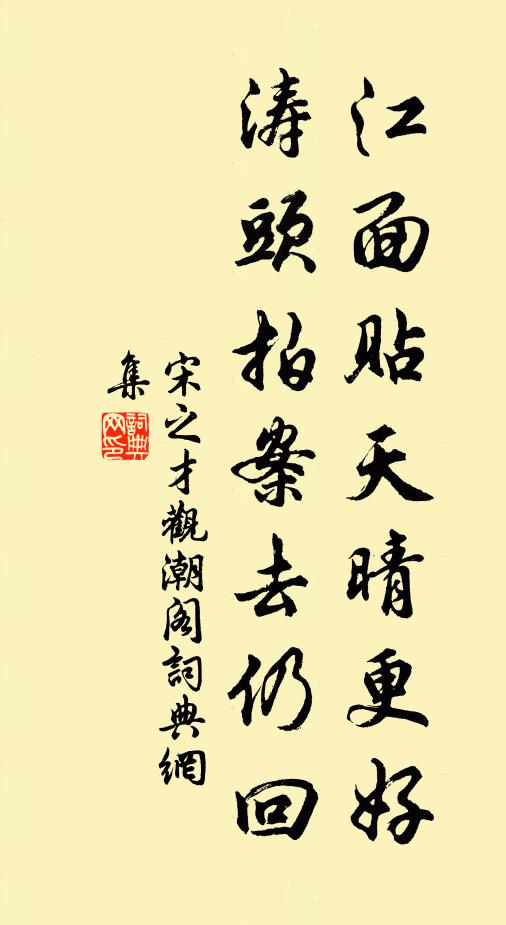 江面貼天晴更好
涛頭拍案去仍回
宋之才觀潮阁詞典網
集
詞典网印